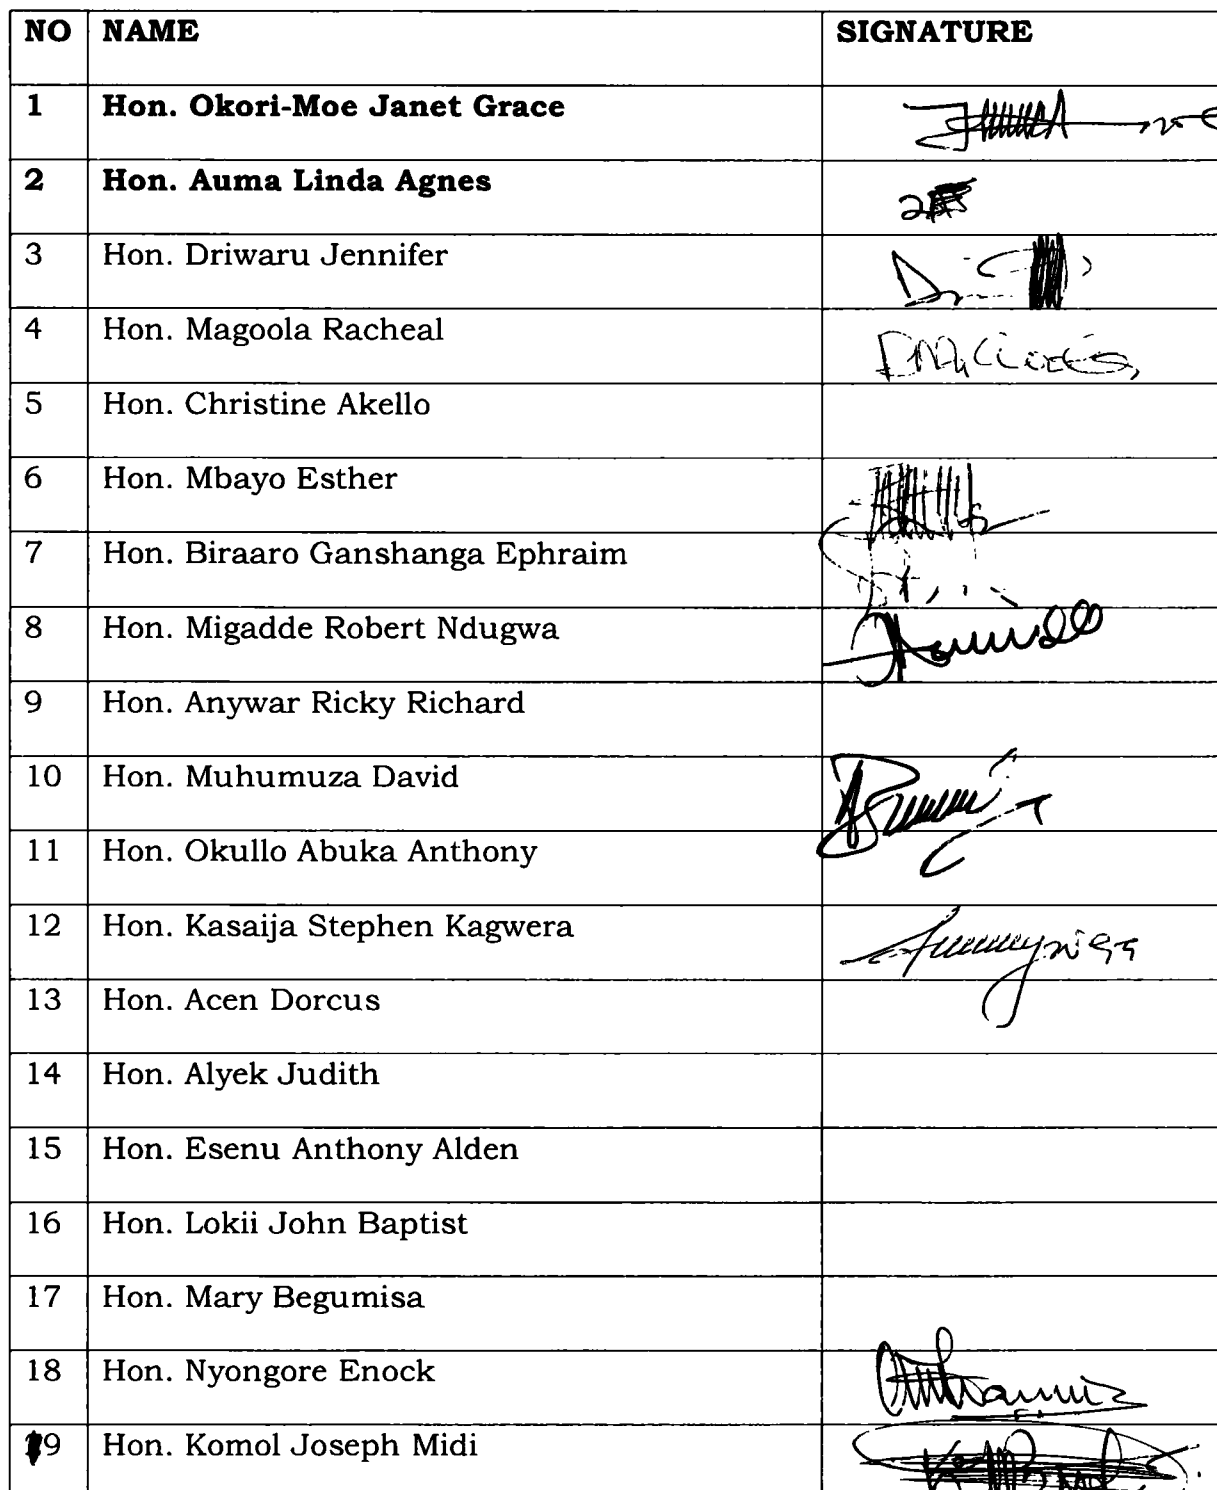 NO NAME SIGNATURE
1 Hon. Okori-Moe Janet Grace
2 Hon. Auma Linda Agnes
3 Hon. Driwaru Jennifer
4 Hon. Magoola Racheal
5 Hon. Christine Akello
6 Hon. Mbayo Esther
7 Hon. Biraaro Ganshanga Ephraim
8 Hon. Migadde Robert Ndugwa
9 Hon. Anywar Ricky Richard
10 Hon. Muhumuza David
11 Hon. Okullo Abuka Anthony
12 Hon. Kasaija Stephen Kagwera
13 Hon. Acen Dorcus
14 Hon. Alyek Judith
15 Hon. Esenu Anthony Alden
16 Hon. Lokii John Baptist
17 Hon. Mary Begumisa
18 Hon. Nyongore Enock
19 Hon. Komol Joseph Midi